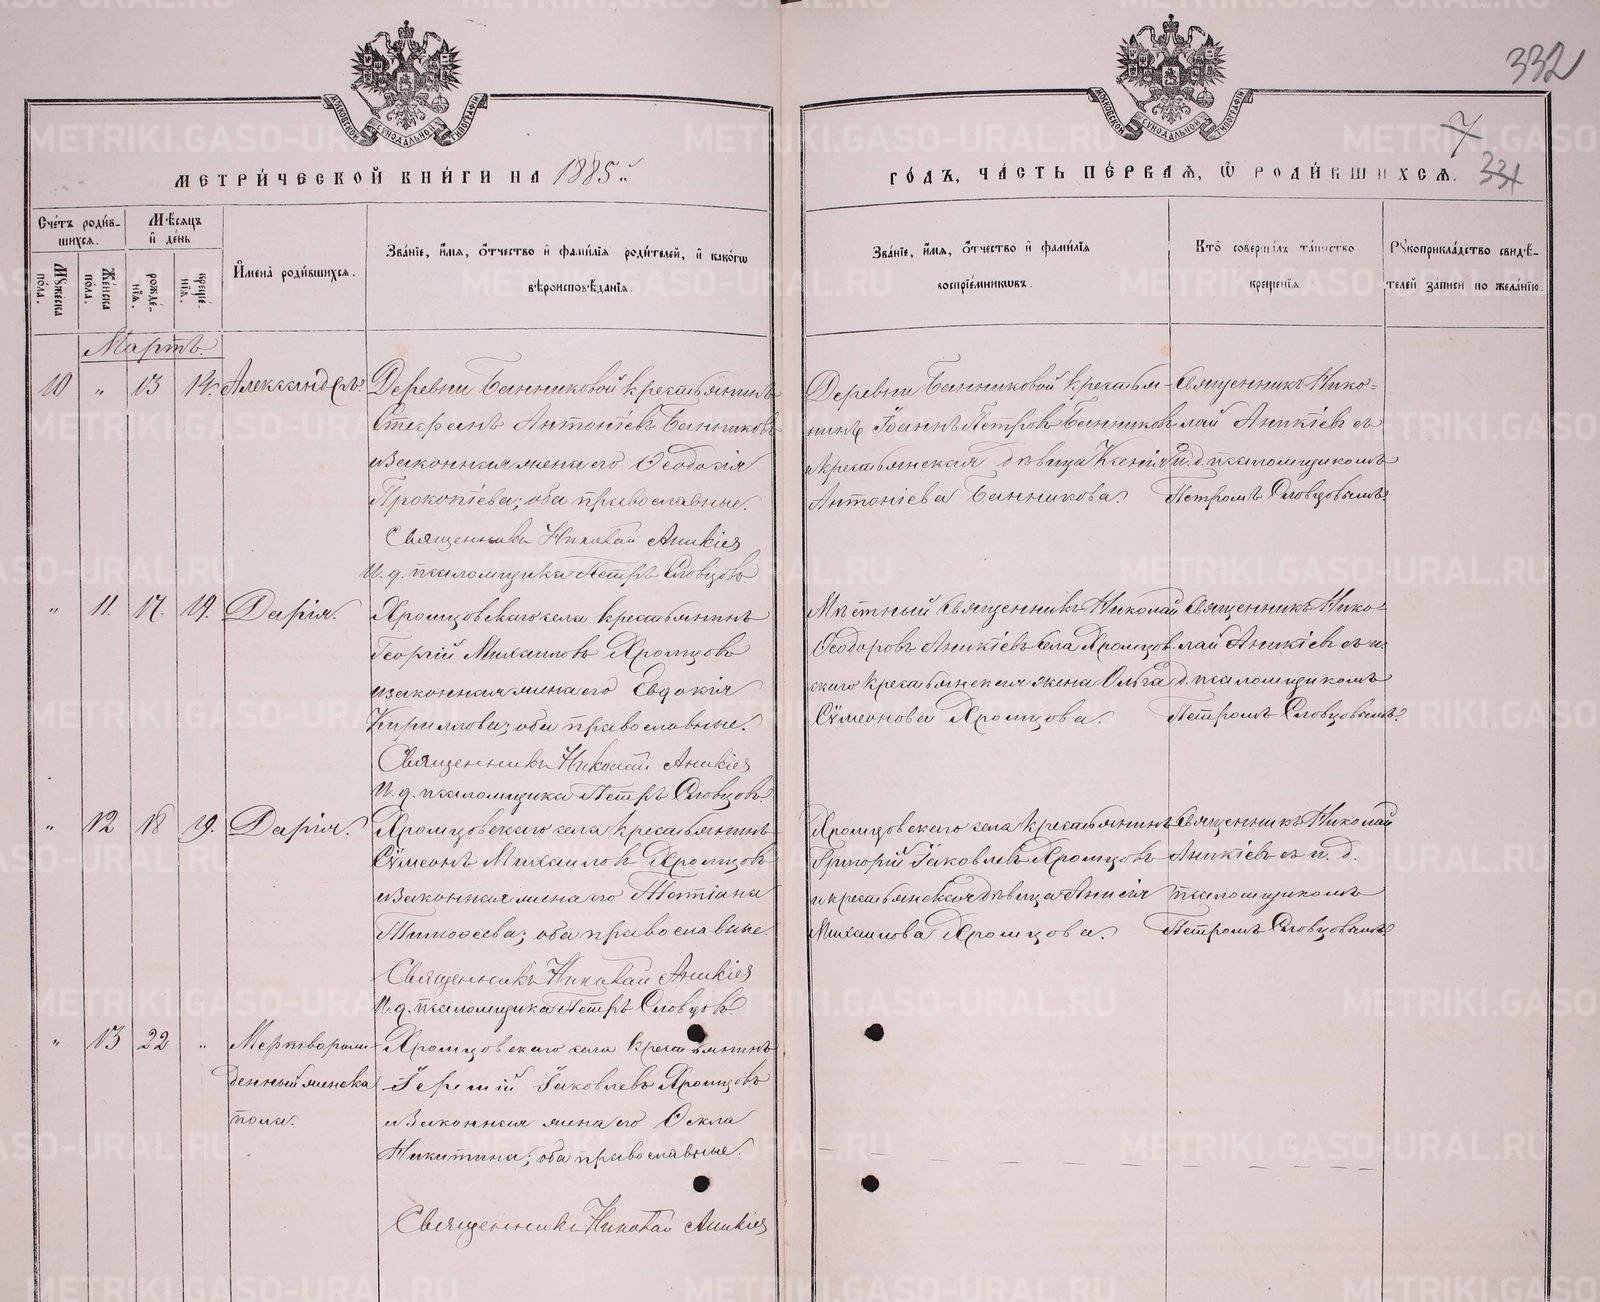 332
7
331
МЕТРИ́ЧЕСКОЙ КНИ́ГИ НА 1885й
ГО́ДЪ, ЧА́СТЬ ПЕ́РВАѦ, Ѽ РОДИ́ВШИХСѦ.
Сче́тъ роди́в-
шихсѧ.
Мꙋ́жеска по́ла.
Же́нска по́ла.
Мѣ́сѧцъ
и҆ де́нь
рожде́-
нїѧ.
креще́-
нїѧ.
И҆мена̀ роди́вшихсѧ.
Зва́нїе, и҆́мѧ, ѻ҆́тчество и҆ фами́лїѧ роди́телей, и҆ како́гѡ
вѣроисповѣ́данїѧ.
Зва́нїе, и҆́мѧ, ѻ҆́тчество и҆ фами́лїѧ
воспрїе́мникѡвъ.
Кто̀ соверша́лъ та́инство
креще́нїѧ
Рꙋкоприкла́дство свидѣ́-
телей за́писи по жела́нїю.
Мартъ.
10 " 13 14. Александръ.
Деревни Банниковой крестьянинъ
Стефанъ Антоніевъ Банниковъ
и законная жена его Ѳеодосія
Прокопіева; оба православные.
Священникъ Николай Аникіев
И. д. псаломщика Петръ Словцовъ.
Деревни Банниковой крестья-
нинъ Іоаннъ Петровъ Банниковъ
и крестьянская дѣвица Ксенія
Антоніева Банникова.
Священникъ Нико-
лай Аникіевъ съ
и. д. псаломщикомъ
Петромъ Словцовымъ.
" 11. 17. 19. Дарія.
Хромцовскаго села крестьянинъ
Георгій Михаиловъ Хромцовъ
и законная жена его Евдокія
Кириллова; оба православные.
Священникъ Николай Аникіев
И. д. псаломщика Петръ Словцовъ.
Мѣстный Священникъ Николай
Ѳеодоровъ Аникіевъ села Хромцов-
скаго крестьянская жена Ольга
Сѵмеонова Хромцова.
Священникъ Нико-
лай Аникіевъ съ и.
д. псаломщикомъ
Петромъ Словцовымъ.
" 12 18 19. Дарія.
Хромцовскаго села крестьянинъ
Сѵмеонъ Михаиловъ Хромцовъ
и законная жена его Татіана
Тимоѳеева; оба православные.
Священникъ Николай Аникіев
И. д. псаломщика Петръ Словцовъ
Хромцовскаго села крестьянинъ
Григорій Іаковлевъ Хромцовъ
и крестьянская дѣвица Анисія
Михаилова Хромцова.
Священникъ Николай
Аникіевъ съ и. д.
псаломщикомъ
Петромъ Словцовымъ
" 13 22 " Мертворож-
денный женска
пола.
Хромцовскаго села крестьянинъ
Іеремій Іаковлевъ Хромцовъ
и законная жена его Ѳекла
Никитина; оба православные.
Священникъ Николай Аникіев